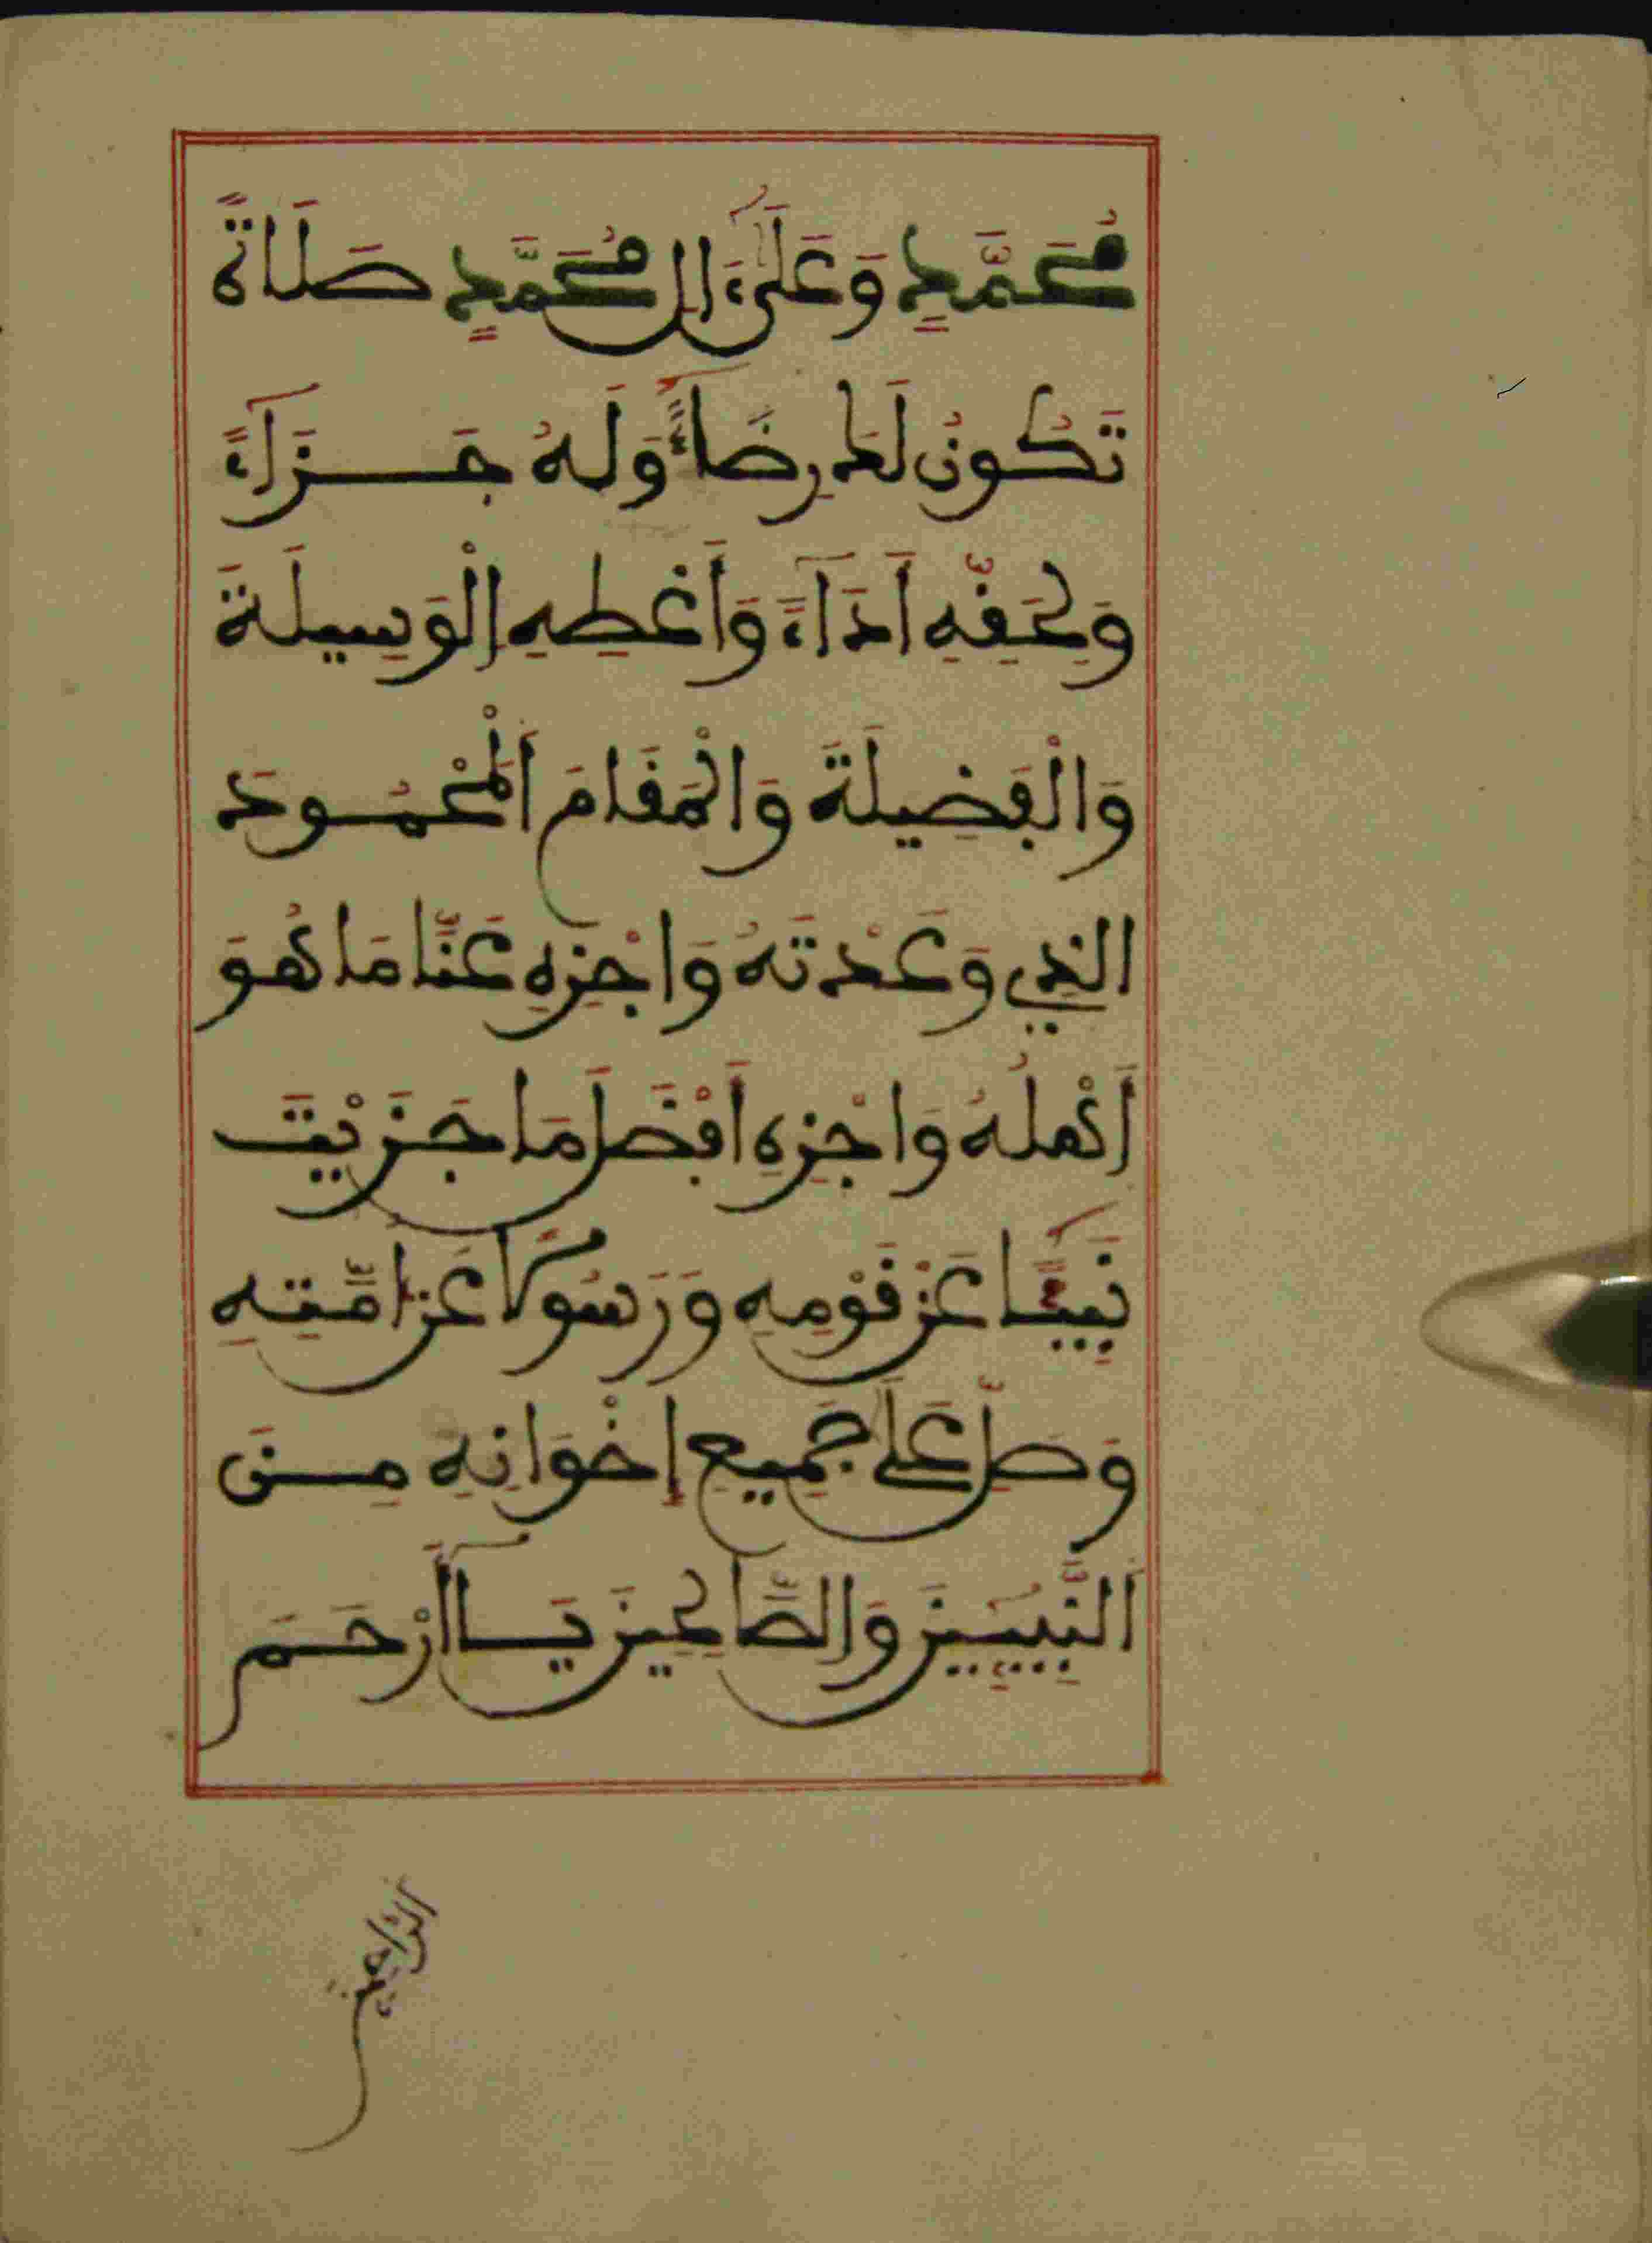 مُحَمَّدٍ وَعَلَىٰٓ ءَالِ مُحَمَّدٍ صَلَاةً
تَكُونُ لَكَ رِضَآءً وَلَهُ جَزَآءً
وَلِحَقِّهِ أَدَآءً وَأَعْطِهِ الْوَسِيلَةَ
وَالْفَضِيلَةَ وَالْمَقَامَ الْمَحْمُودَ
الذِي وَعَدْتَهُ وَاجْزِهِ عَنَّا مَا هُوَ
أَهْلُهُ وَاجْزِهِ أَفْضَلَ مَا جَزَيْتَ
نَبِيـًٔا عَنْ قَوْمِهِ وَرَسُولًا عَنْ أُمَّتِهِ
وَصَلِّ عَلَى جَمِيعِ إِخْوَانِهِ مِنَ
النَّبِيٓـِٔينَ وَالصَّالِحِينَ يَآ أَرْحَمَ
الرَّاحِمِينَ